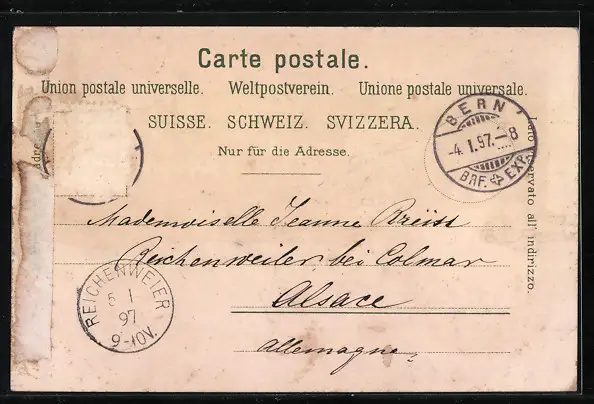 Carte postale.
Union postale universelle. Weltpostverein. Unione postale universale.
SUISSE. SCHWEIZ. SVIZZERA.
Nur für die Adresse.
BERN
-4.I.97.-8
BRF. EXP.
Mademoiselle Jeanne
Reichenweiler bei Colmar
Alsace
Allemagne
REICHENWEIER
5 1
97
9-10V.
all' indirizzo.